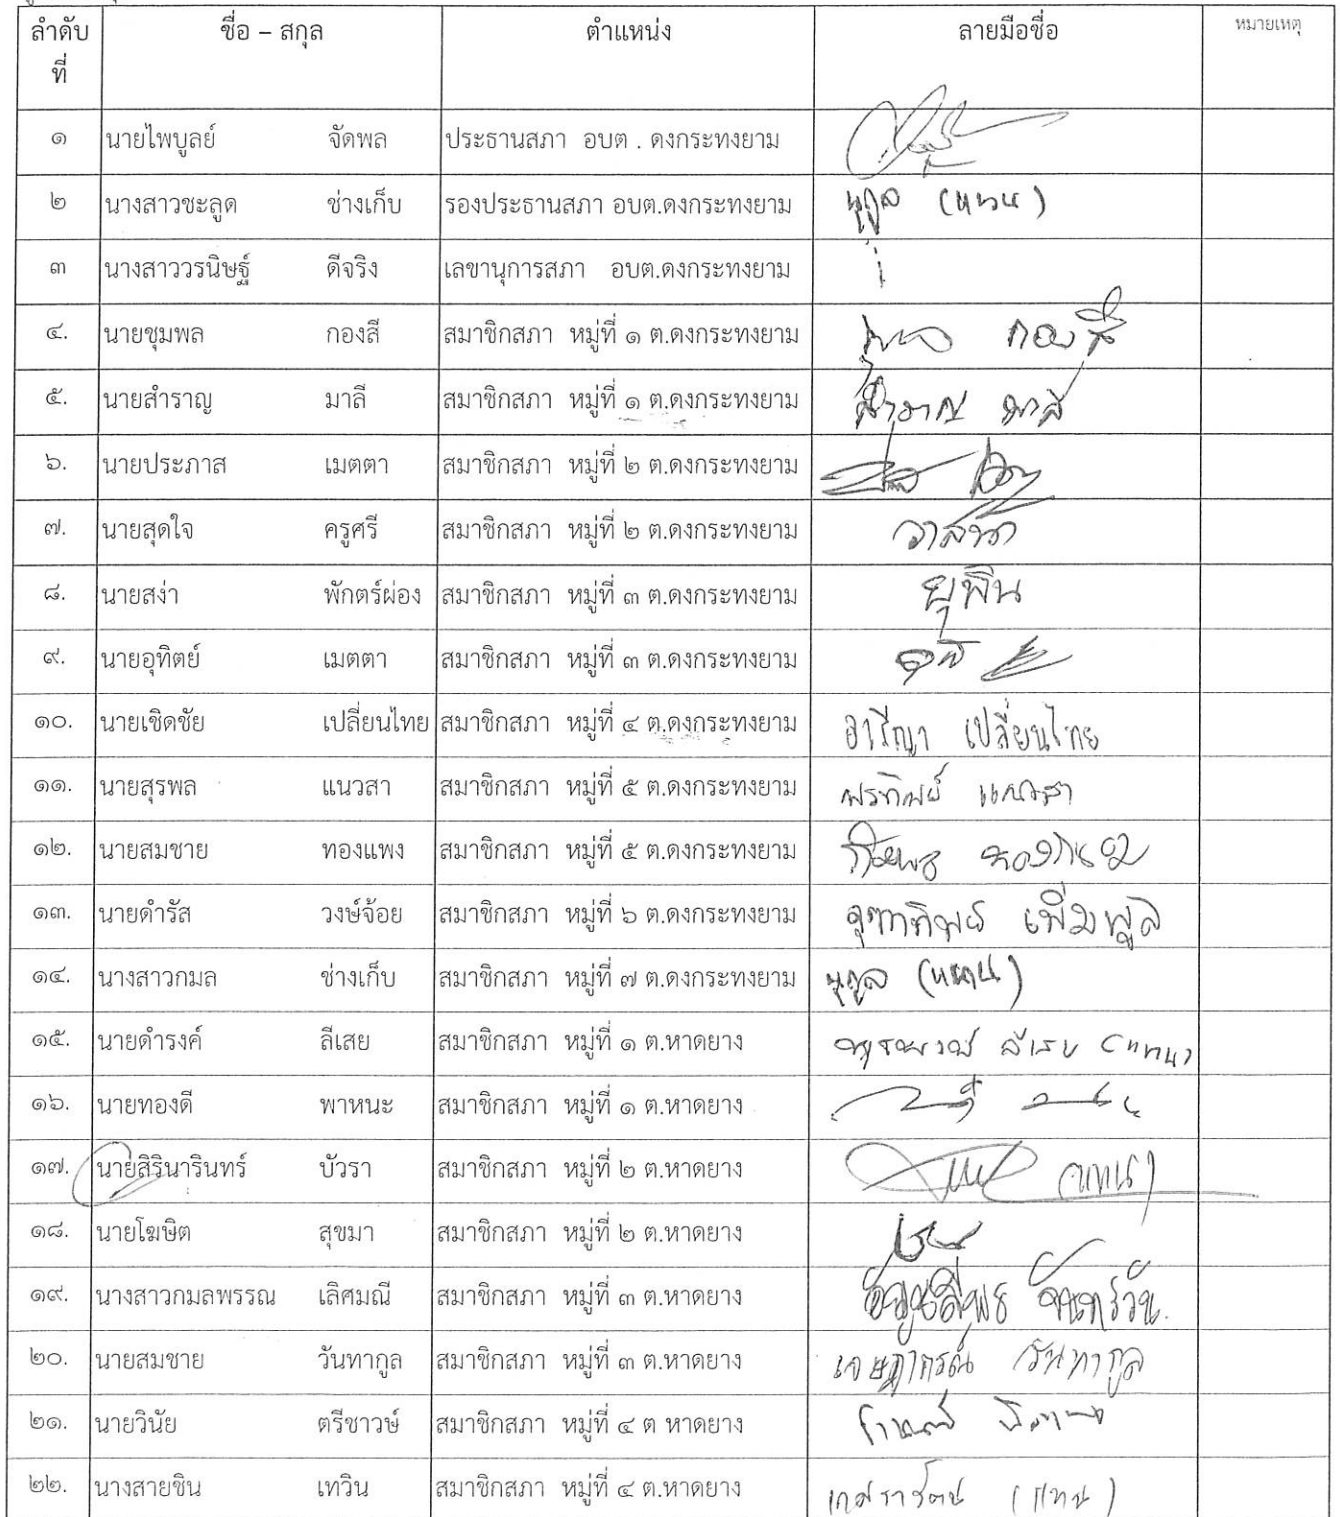 ลำดับ ชื่อ – สกุล ตำแหน่ง ลายมือชื่อ หมายเหตุ
ที่
๑ นายไพบูลย์ จัดพล ประธานสภา อบต . ดงกระทงยาม
๒ นางสาวชะลูด ช่างเก็บ รองประธานสภา อบต.ดงกระทงยาม (แทน)
๓ นางสาววรนิษฐ์ ดีจริง เลขานุการสภา อบต.ดงกระทงยาม
๔. นายชุมพล กองสี สมาชิกสภา หมู่ที่ ๑ ต.ดงกระทงยาม กองสี
๕. นายสำราญ มาลี สมาชิกสภา หมู่ที่ ๑ ต.ดงกระทงยาม สำราญ มาลี
๖. นายประภาส เมตตา สมาชิกสภา หมู่ที่ ๒ ต.ดงกระทงยาม
๗. นายสุดใจ ครูศรี สมาชิกสภา หมู่ที่ ๒ ต.ดงกระทงยาม วาสนา
๘. นายสง่า พักตร์ผ่อง สมาชิกสภา หมู่ที่ ๓ ต.ดงกระทงยาม ยุพิน
๙. นายอุทิตย์ เมตตา สมาชิกสภา หมู่ที่ ๓ ต.ดงกระทงยาม
๑๐. นายเชิดชัย เปลี่ยนไทย สมาชิกสภา หมู่ที่ ๔ ต.ดงกระทงยาม อารีญา เปลี่ยนไทย
๑๑. นายสุรพล แนวสา สมาชิกสภา หมู่ที่ ๕ ต.ดงกระทงยาม พรทิพย์ แนวสา
๑๒. นายสมชาย ทองแพง สมาชิกสภา หมู่ที่ ๕ ต.ดงกระทงยาม
๑๓. นายดำรัส วงษ์จ้อย สมาชิกสภา หมู่ที่ ๖ ต.ดงกระทงยาม จุฑาทิพย์ เพิ่มพูล
๑๔. นางสาวกมล ช่างเก็บ สมาชิกสภา หมู่ที่ ๗ ต.ดงกระทงยาม (แทน)
๑๕. นายดำรงค์ ลีเสย สมาชิกสภา หมู่ที่ ๑ ต.หาดยาง ลีเสย (แทน)
๑๖. นายทองดี พาหนะ สมาชิกสภา หมู่ที่ ๑ ต.หาดยาง
๑๗. นายสิรินารินทร์ บัวรา สมาชิกสภา หมู่ที่ ๒ ต.หาดยาง (แทน)
๑๘. นายโฆษิต สุขมา สมาชิกสภา หมู่ที่ ๒ ต.หาดยาง
๑๙. นางสาวกมลพรรณ เลิศมณี สมาชิกสภา หมู่ที่ ๓ ต.หาดยาง
๒๐. นายสมชาย วันทากูล สมาชิกสภา หมู่ที่ ๓ ต.หาดยาง เจษฎาภรณ์ วันทากูล
๒๑. นายวินัย ตรีชาวษ์ สมาชิกสภา หมู่ที่ ๔ ต หาดยาง
๒๒. นางสายชิน เทวิน สมาชิกสภา หมู่ที่ ๔ ต.หาดยาง (แทน)